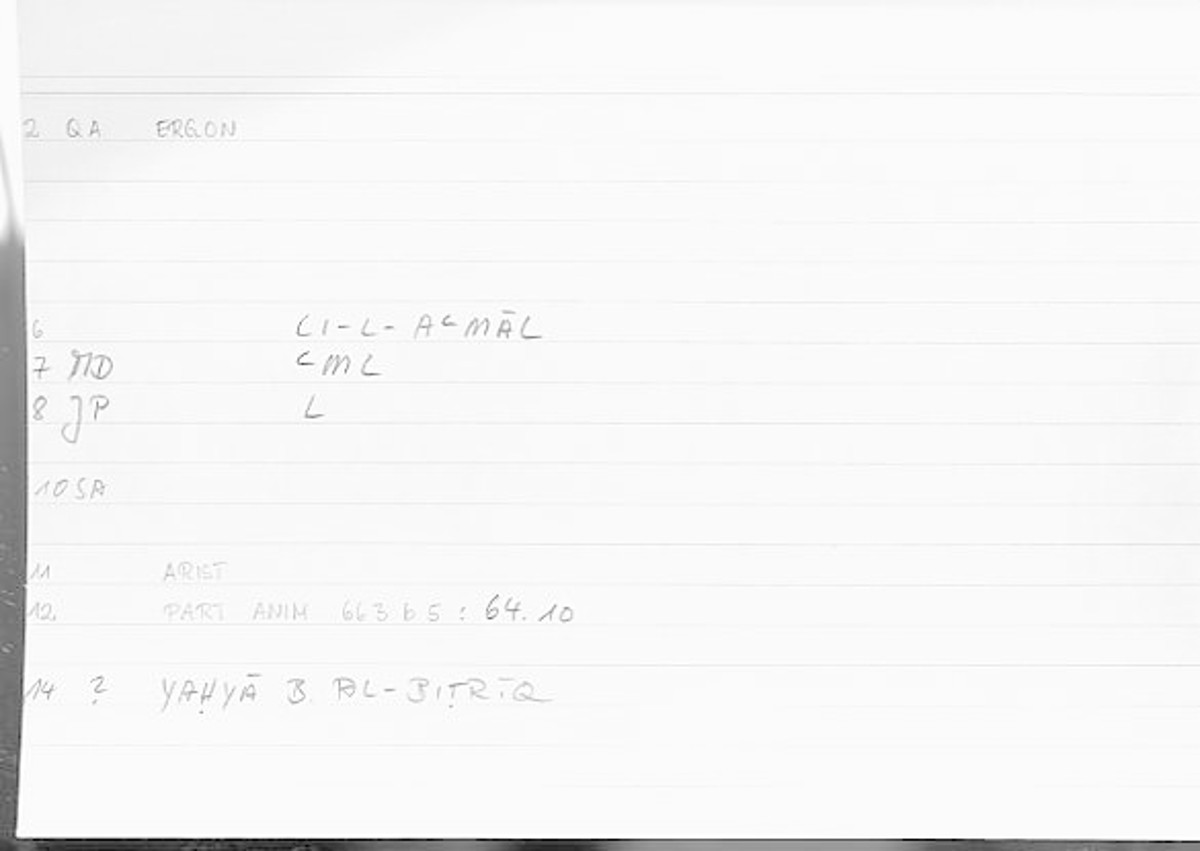 2 QA ERGON
6 LI-L-AʿMĀL
7 MD ʿML
8 JP L
10 SA
11 ARIST
12 PART ANIM 663 b 5 : 64.10
14 ? YAḤYĀ B. AL-BIṬRĪQ